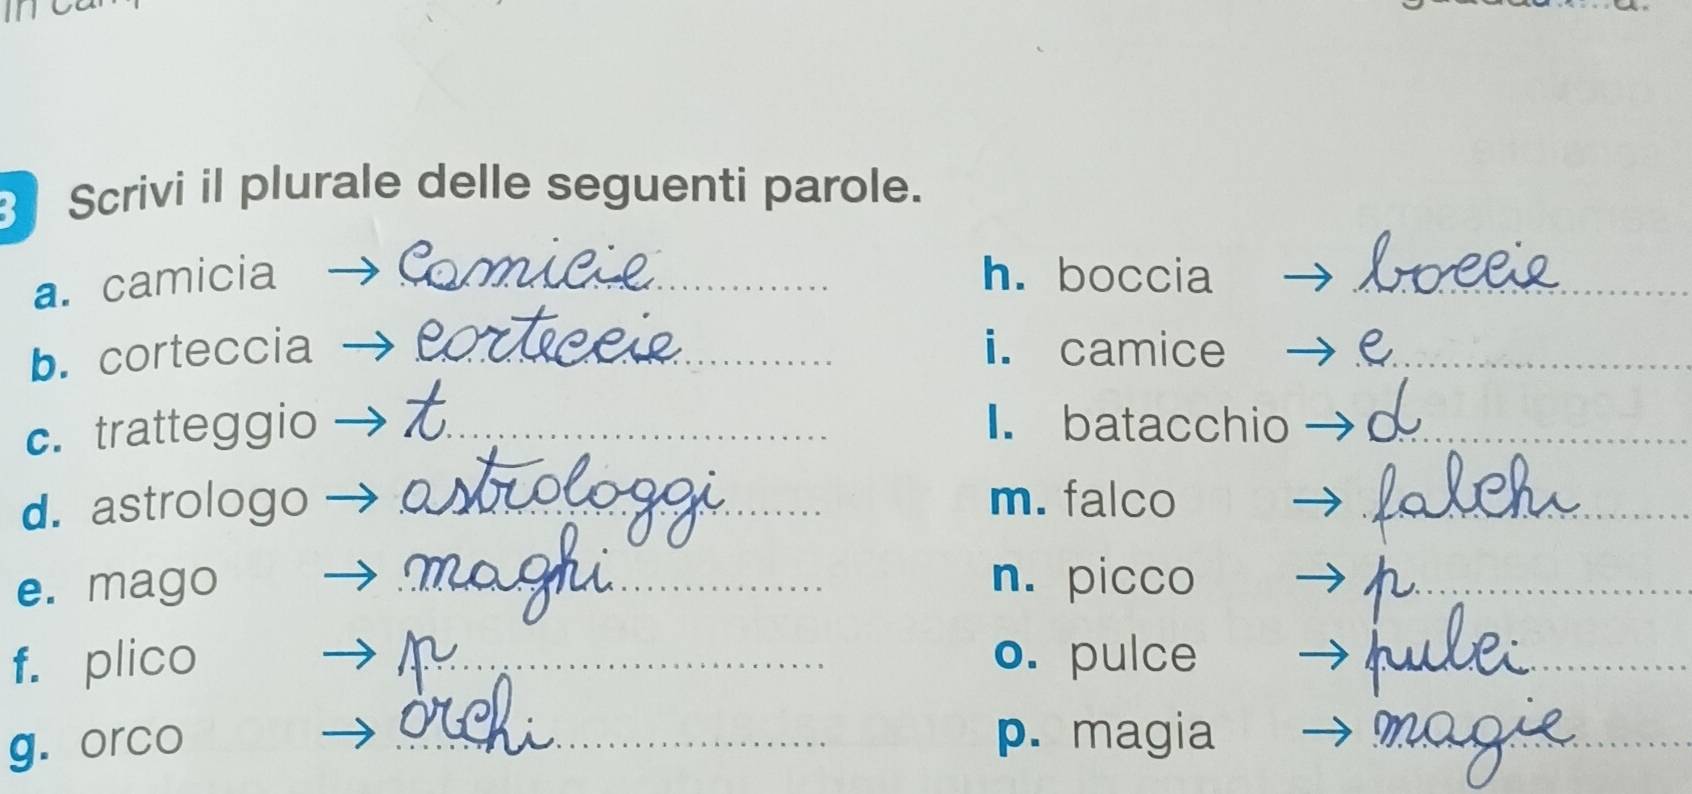 3 Scrivi il plurale delle seguenti parole.
a. camicia → camicie
b. corteccia → corteccie
c. tratteggio → t
d. astrologo → astrologgi
e. mago → maghi
f. plico → p
g. orco → orchi
h. boccia → boccie
i. camice → c
l. batacchio → d
m. falco → falchi
n. picco → p
o. pulce → pulci
p. magia → magie